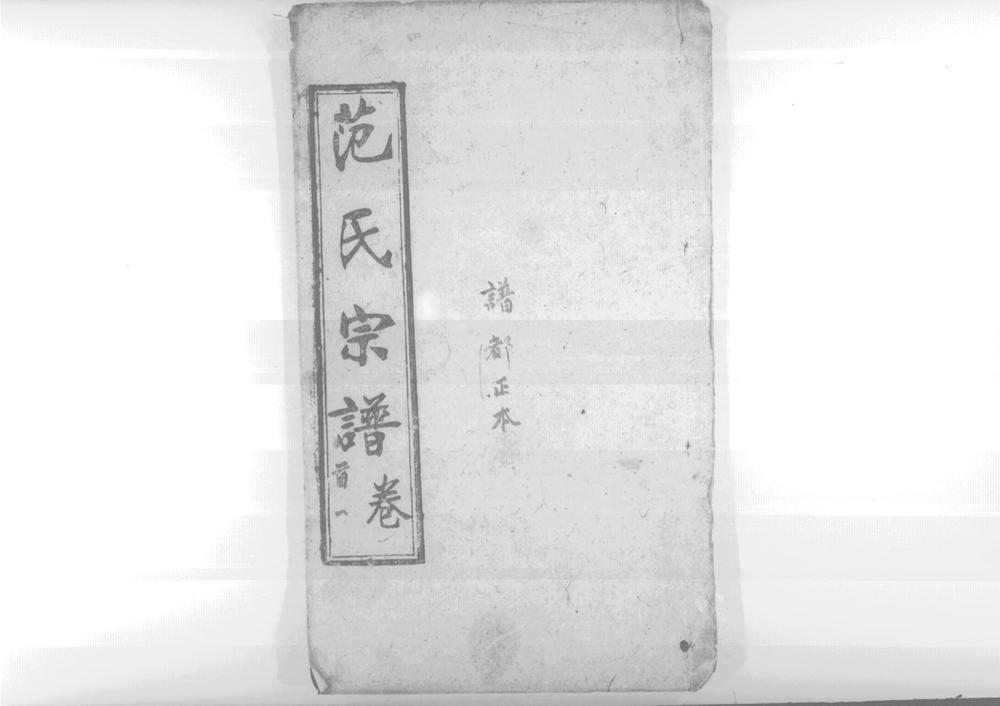 譜都正本
范氏宗譜卷
首一